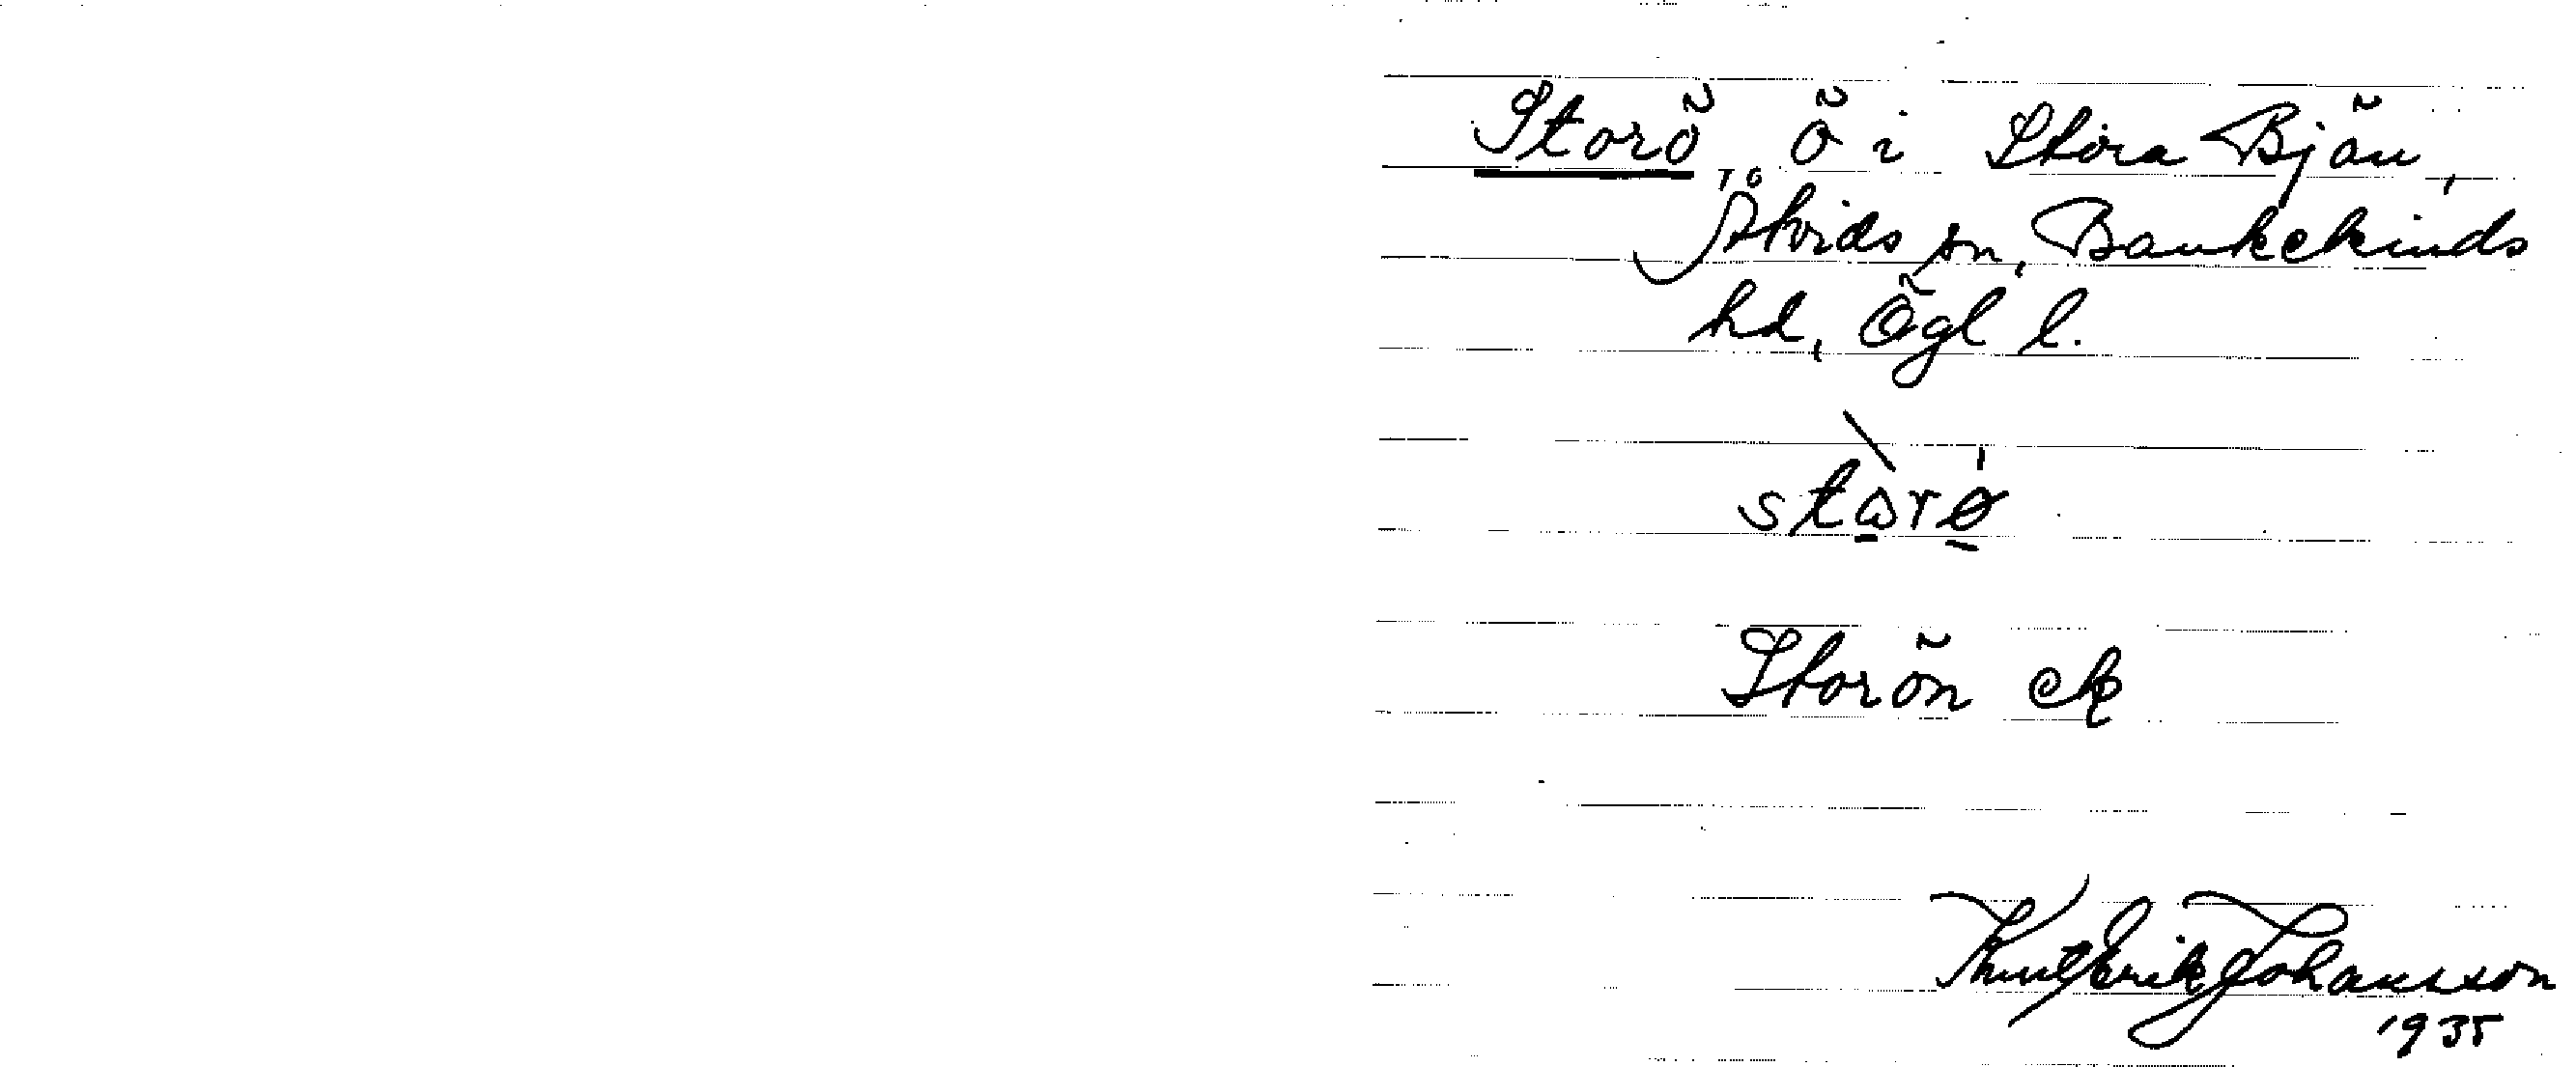 Storö ö i Stora Bjän,
TÖ
Åtvids sn, Bankekinds
hd, Ögl l.
storö
Storön ek
Knut Erik Johansson
1935